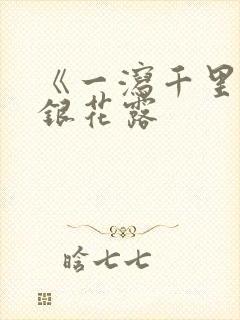 《一瀉千里
銀花露
晗七七